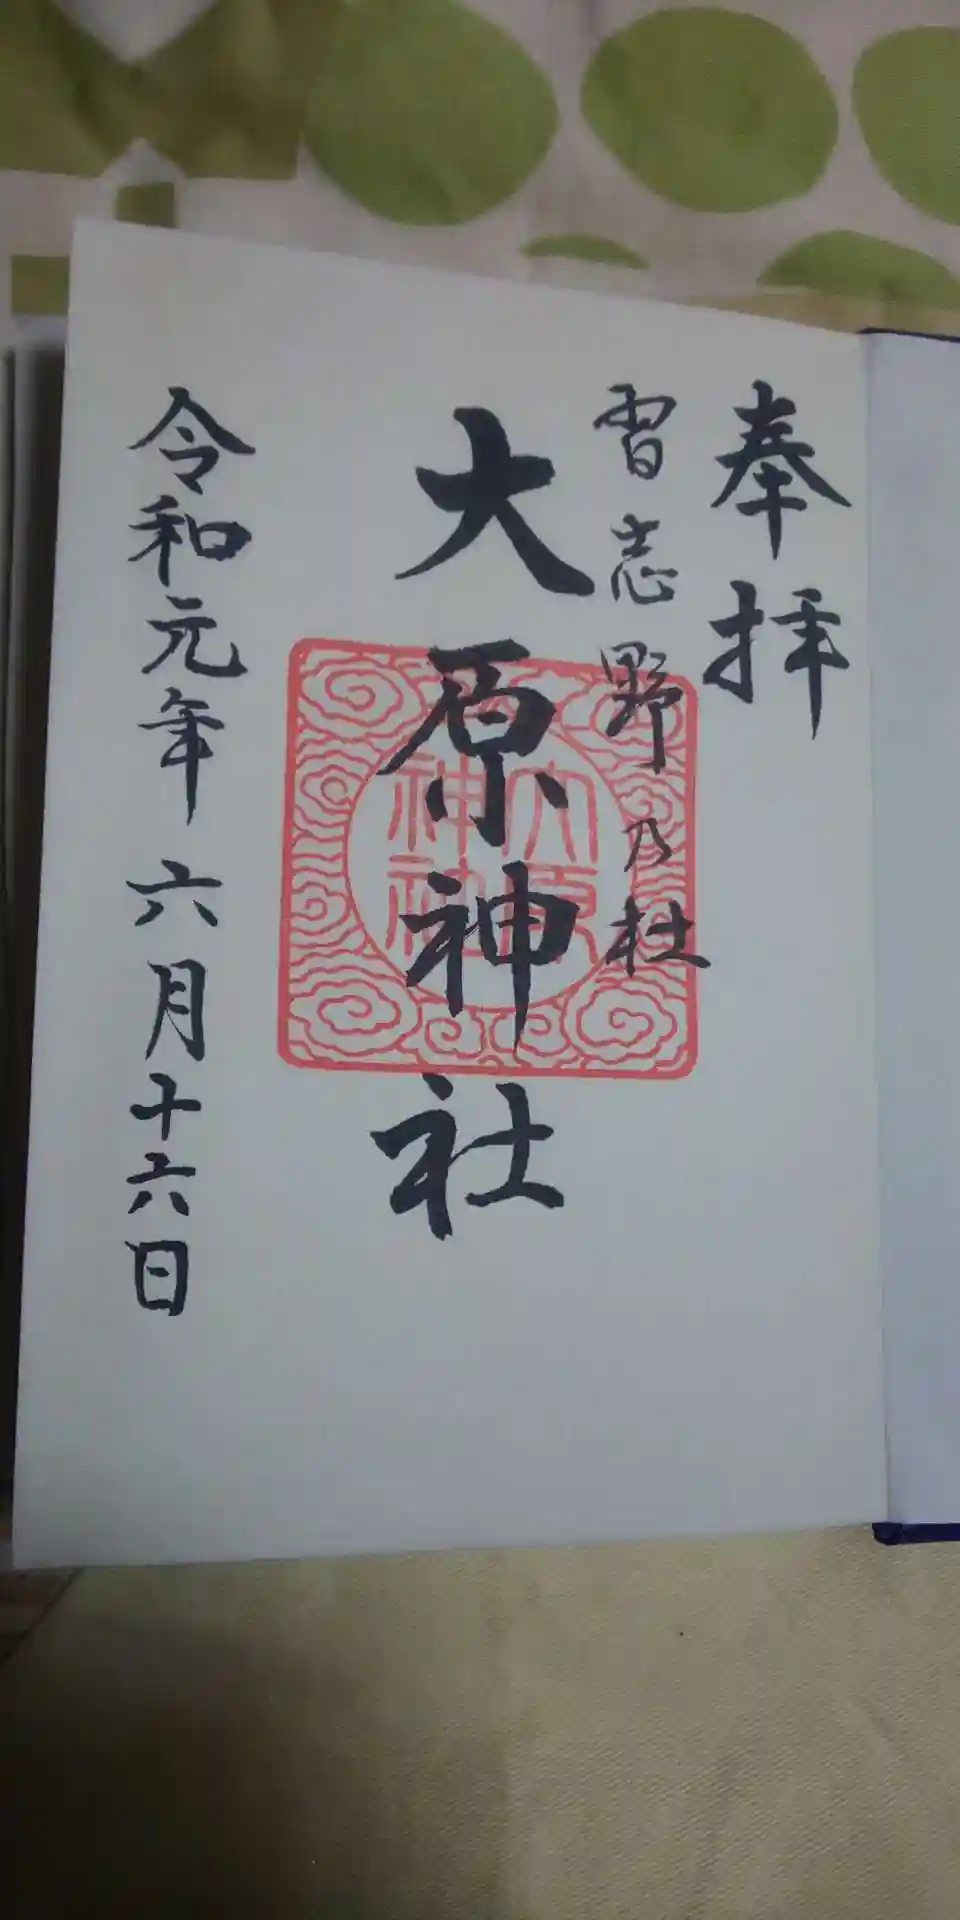 奉拝
習志野乃杜
大原神社
大原神社
令和元年六月十六日